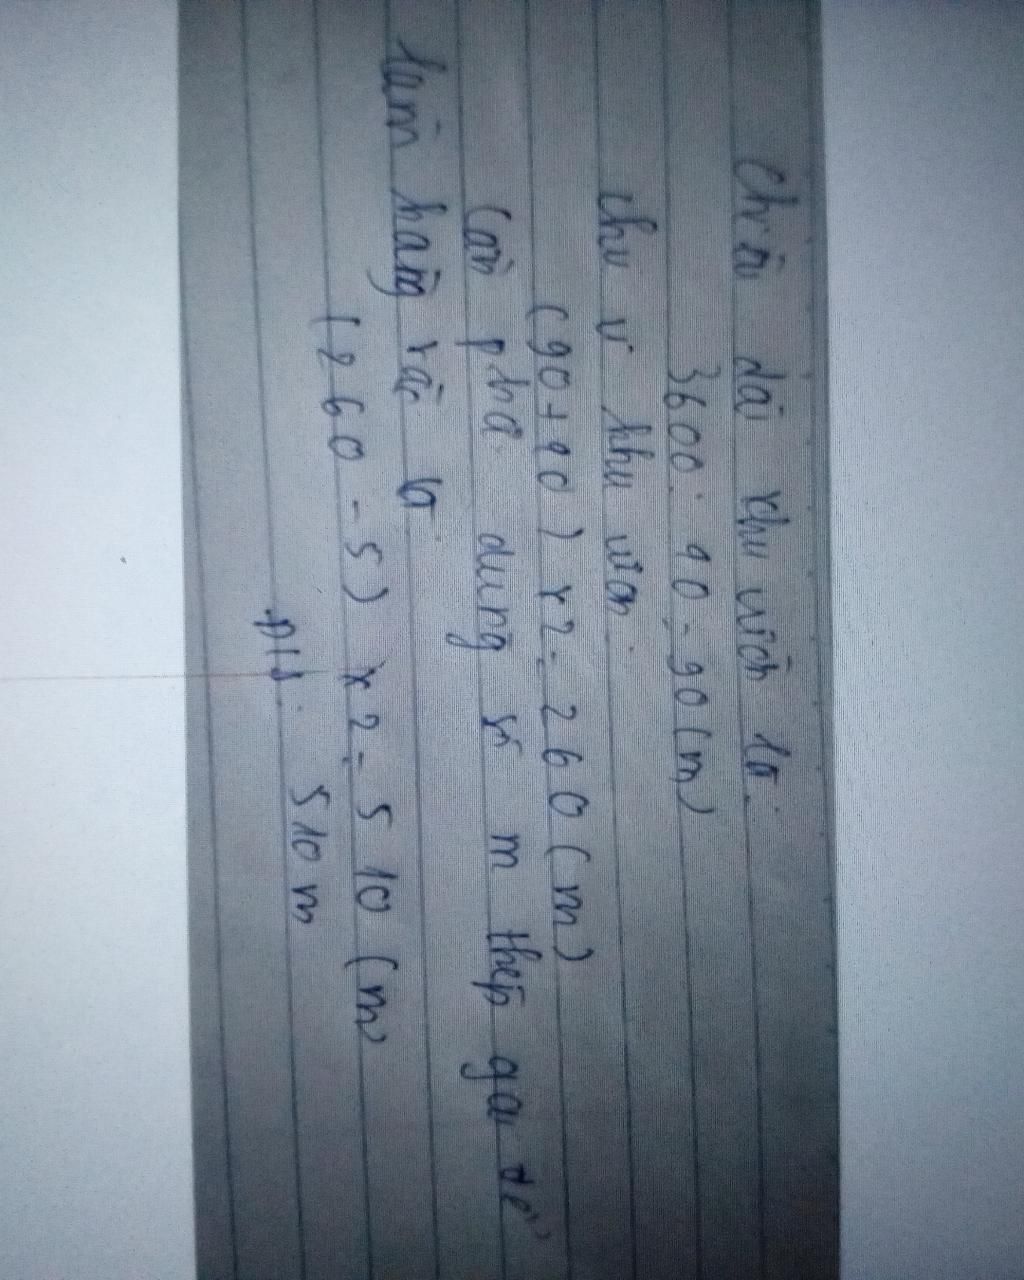 Chiều dài khu vườn là:
3600 : 40 = 90 (m)
chu vi khu vườn:
(90 + 40) x 2 = 260 (m)
Cần phải dùng số m thép gai để
làm hàng rào là:
(260 - 5) x 2 = 510 (m)
Đ/S: 510 m